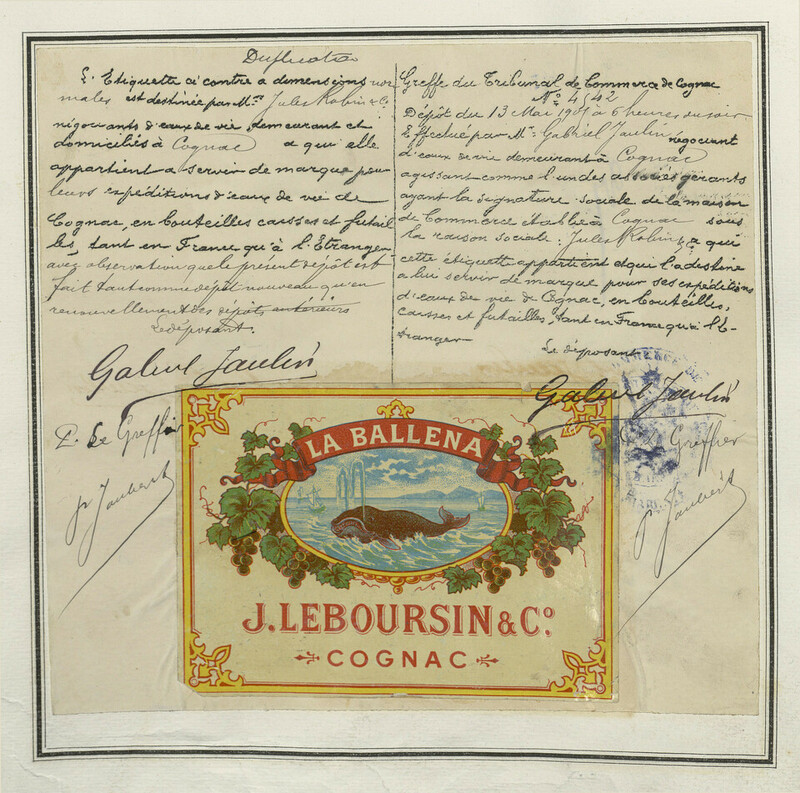 Duplicata
L'Etiquette ci contre a dimensions nor
males est destinée par M.rs Jules Robin & Co
négociants d'eaux de vie, demeurant et
domiciliés à Cognac a qui elle
appartient a servir de marque pour
leurs expéditions d'eaux de vie de
Cognac, en bouteilles caisses et futail
les, tant en France qu'à l'Etranger
avec observation que le présent dépôt est
fait tant comme dépôt nouveau qu'en
renouvellement des dépôts antérieurs
Le déposant.
Gabriel Jaulin
P. Le Greffier
Jaubert
Greffe du Tribunal de Commerce de Cognac
No 4542
Dépôt du 13 Mai 1901 à 6 heures du soir
Effectué par Mr Gabriel Jaulin négociant
d'eaux de vie demeurant à Cognac
agissant comme l'un des associés gérants
ayant la signature sociale de la maison
de Commerce établie à Cognac sous
la raison sociale: Jules Robin & a qui
cette étiquette appartient et qui l'a destine
a lui servir de marque pour ses expéditions
d'eaux de vie de Cognac, en bouteilles,
caisses et futailles, tant en France qu'à l'E-
tranger-
Le déposant
Gabriel Jaulin
Le Greffier
Jaubert
LA BALLENA
J. LEBOURSIN & Co.
COGNAC